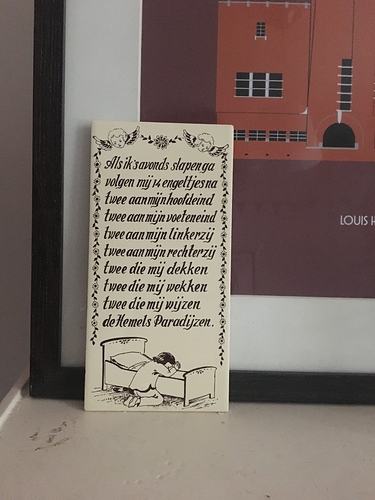 Als ik 's avonds slapen ga
volgen mij 14 engeltjes na
twee aan mijn hoofdeind
twee aan mijn voeteneind
twee aan mijn linkerzij
twee aan mijn rechterzij
twee die mij dekken
twee die mij wekken
twee die mij wijzen
de Hemels Paradijzen.
LOUIS